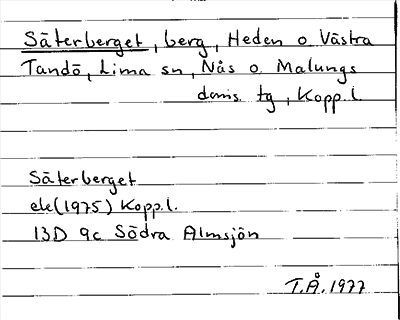 Säterberget, berg, Heden o Västra
Tandö, Lima sn, Nås o. Malungs
doms. tg, Kopp. l.
Säterberget
ek (1975) Kopp. l.
13D 9c Södra Almsjön
T.Å. 1977